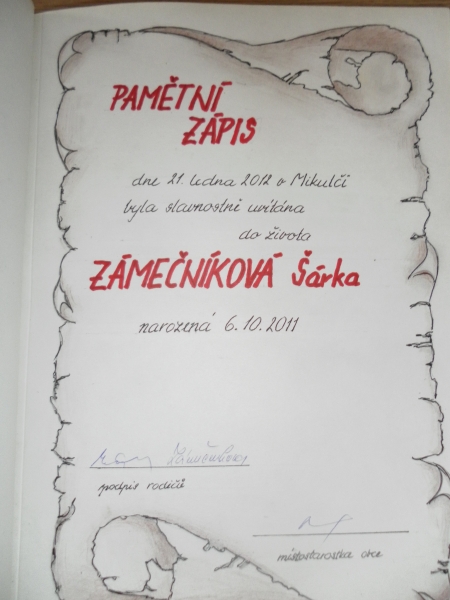 PAMĚTNÍ
ZÁPIS
dne 21. ledna 2012 v Mikulčí
byla slavnostně uvítána
do života
ZÁMEČNÍKOVÁ Šárka
narozená 6.10.2011
podpis rodičů
místostarostka obce